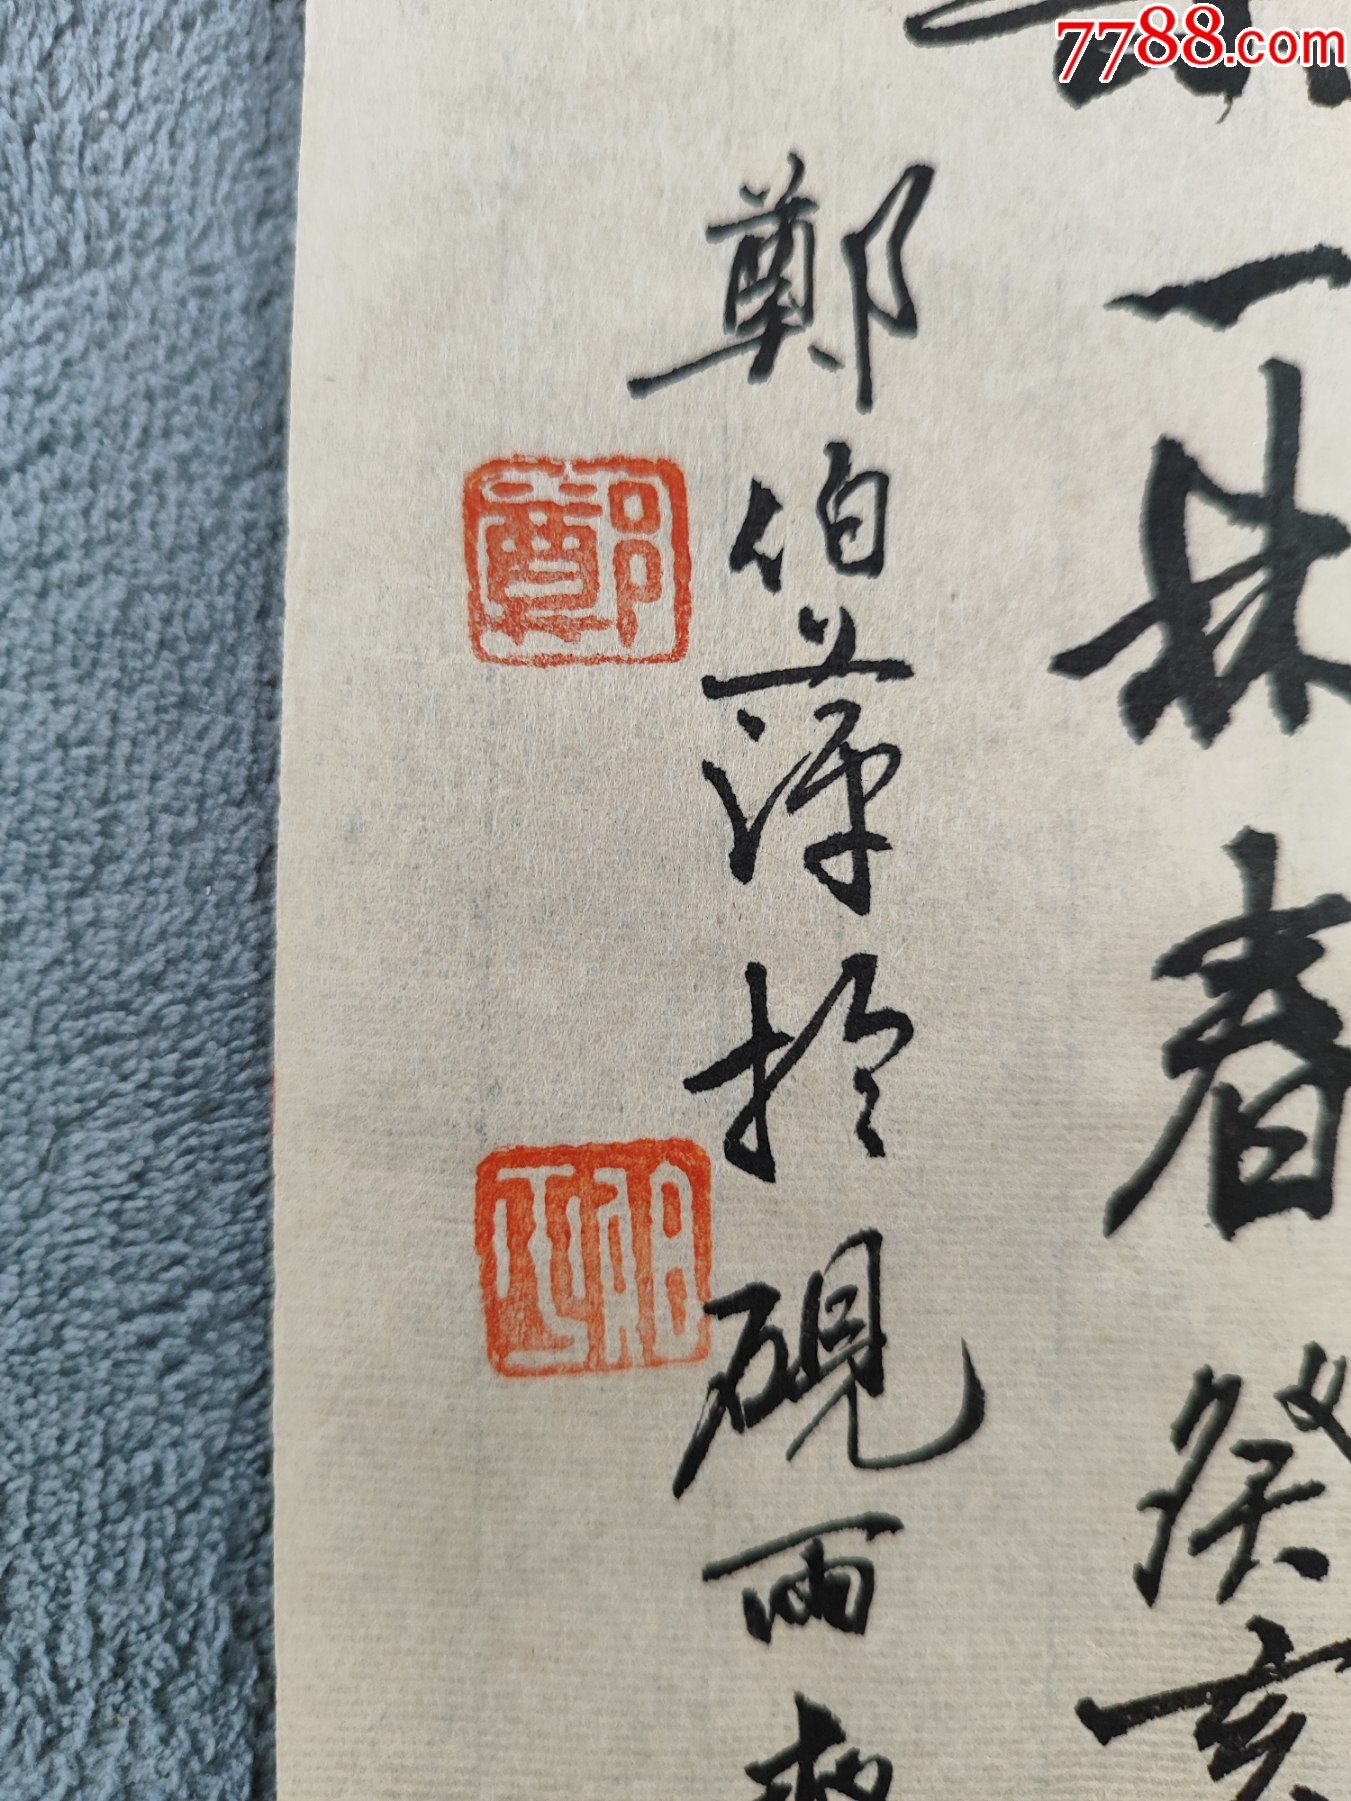 7788.com
一林春癸亥
鄭伯萍於硯雨
鄭
伯萍